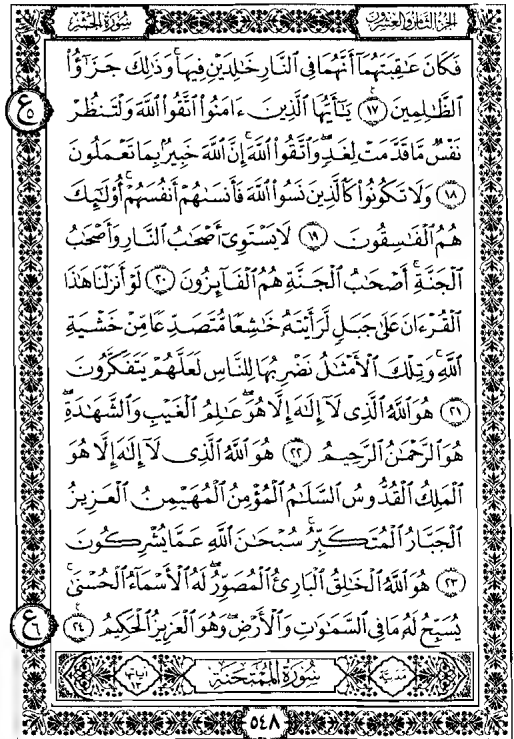 الجزء الثامن والعشرون سورة الحشر
فَكَانَ عَٰقِبَتَهُمَآ أَنَّهُمَا فِي ٱلنَّارِ خَٰلِدَيْنِ فِيهَاۚ وَذَٰلِكَ جَزَٰٓؤُا۟
ٱلظَّٰلِمِينَ ١٧ يَٰٓأَيُّهَا ٱلَّذِينَ ءَامَنُوا۟ ٱتَّقُوا۟ ٱللَّهَ وَلْتَنظُرْ
ع ٥
نَفْسٌ مَّا قَدَّمَتْ لِغَدٍۖ وَٱتَّقُوا۟ ٱللَّهَۚ إِنَّ ٱللَّهَ خَبِيرٌۢ بِمَا تَعْمَلُونَ
١٨ وَلَا تَكُونُوا۟ كَٱلَّذِينَ نَسُوا۟ ٱللَّهَ فَأَنسَىٰهُمْ أَنفُسَهُمْۚ أُو۟لَٰٓئِكَ
هُمُ ٱلْفَٰسِقُونَ ١٩ لَا يَسْتَوِىٓ أَصْحَٰبُ ٱلنَّارِ وَأَصْحَٰبُ
ٱلْجَنَّةِۚ أَصْحَٰبُ ٱلْجَنَّةِ هُمُ ٱلْفَآئِزُونَ ٢٠ لَوْ أَنزَلْنَا هَٰذَا
ٱلْقُرْءَانَ عَلَىٰ جَبَلٍ لَّرَأَيْتَهُۥ خَٰشِعًا مُّتَصَدِّعًا مِّنْ خَشْيَةِ
ٱللَّهِۚ وَتِلْكَ ٱلْأَمْثَٰلُ نَضْرِبُهَا لِلنَّاسِ لَعَلَّهُمْ يَتَفَكَّرُونَ
٢١ هُوَ ٱللَّهُ ٱلَّذِى لَآ إِلَٰهَ إِلَّا هُوَۖ عَٰلِمُ ٱلْغَيْبِ وَٱلشَّهَٰدَةِۖ
هُوَ ٱلرَّحْمَٰنُ ٱلرَّحِيمُ ٢٢ هُوَ ٱللَّهُ ٱلَّذِى لَآ إِلَٰهَ إِلَّا هُوَ
ٱلْمَلِكُ ٱلْقُدُّوسُ ٱلسَّلَٰمُ ٱلْمُؤْمِنُ ٱلْمُهَيْمِنُ ٱلْعَزِيزُ
ٱلْجَبَّارُ ٱلْمُتَكَبِّرُۚ سُبْحَٰنَ ٱللَّهِ عَمَّا يُشْرِكُونَ
٢٣ هُوَ ٱللَّهُ ٱلْخَٰلِقُ ٱلْبَارِئُ ٱلْمُصَوِّرُۖ لَهُ ٱلْأَسْمَآءُ ٱلْحُسْنَىٰۚ
يُسَبِّحُ لَهُۥ مَا فِى ٱلسَّمَٰوَٰتِ وَٱلْأَرْضِۖ وَهُوَ ٱلْعَزِيزُ ٱلْحَكِيمُ ٢٤
ع ٦
مدنية سورة الممتحنة آياتها ١٣
٥٤٨